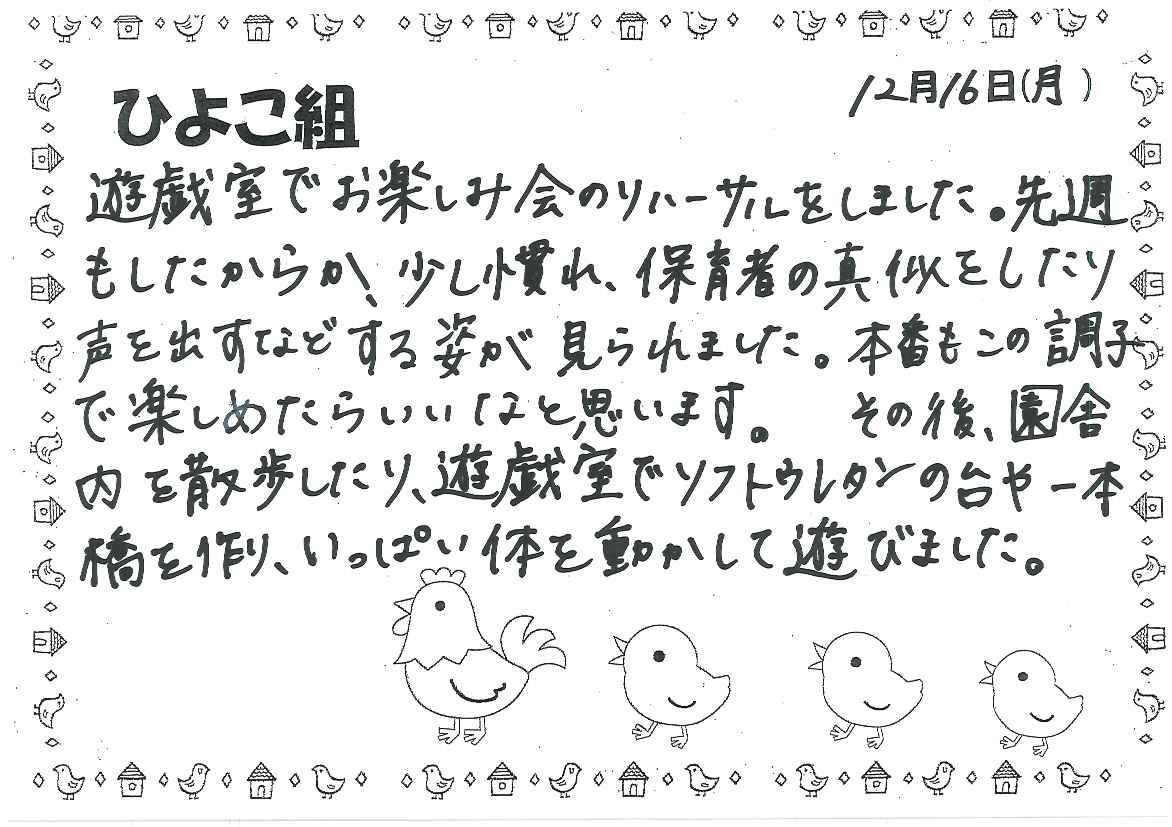 ひよこ組
12月16日(月)
遊戯室でお楽しみ会のリハーサルをしました。先週
もしたからか、少し慣れ、保育者の真似をしたり
声を出すなどする姿が見られました。本番もこの調子
で楽しめたらいいなと思います。 その後、園舎
内を散歩したり、遊戯室でソフトウレタンの台や一本
橋を作り、いっぱい体を動かして遊びました。